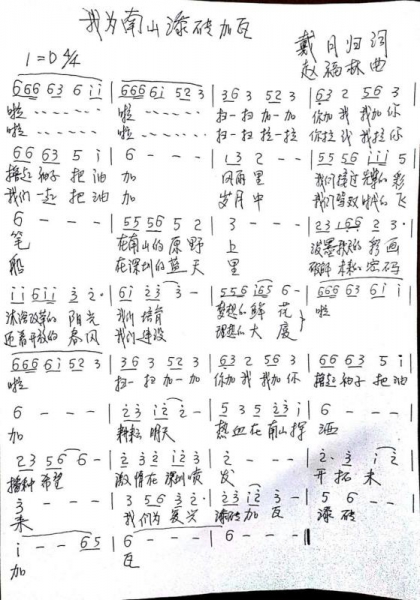 我为南山添砖加瓦
戴月归 词
1=D 4/4
赵福林 曲
666 63 6 i i | 666 6i 52 3 | 36 3 52 3 | 63 2 56 3
啦 啦 扫一扫加一加 你加我 我加你
啦 啦 扫一扫拉一拉 你拉我 我拉你
66 63 5 i | 6 - - - | 13 2 - - | 55 56 iii 5
撸起袖子把油 加 风雨里 我们接过先辈的彩
我们一起把油 加 岁月中 我们驾驭时代的飞
6 - - - | 55 56 5 2 | 3 - - - | 23 166 2 3
笔 在南山的原野 上 泼墨我的彩画
船 在深圳的蓝天 里 破解未来的密码
ii 6ii 3 2 | 6i 23 3 - | 556 i65 6 - | 666 63 6i i
沐浴改革的阳光 我们培育 梦想的鲜花 啦
迎着开放的春风 我们建设 理想的大厦
666 6i 52 3 | 36 3 52 3 | 63 2 56 3 | 66 63 5 i
啦 扫一扫加一加 你加我 我加你 撸起袖子把油
6 - - - | 23 i2 2 - | 53 5 23 i | 6 - - -
加 耕耘明天 热血在南山挥 洒
23 56 6 - | 2 32 i23 | 2 - - - | 2· 3 i 2
播种希望 激情在深圳喷 发 开拓未
3 - - - | 3 56 3 2 | 23 i2 3 - | 5 6 - -
来 我们为复兴 添砖加瓦 添砖
i - - 65 | 6 - - - | 6 - - -
加 瓦